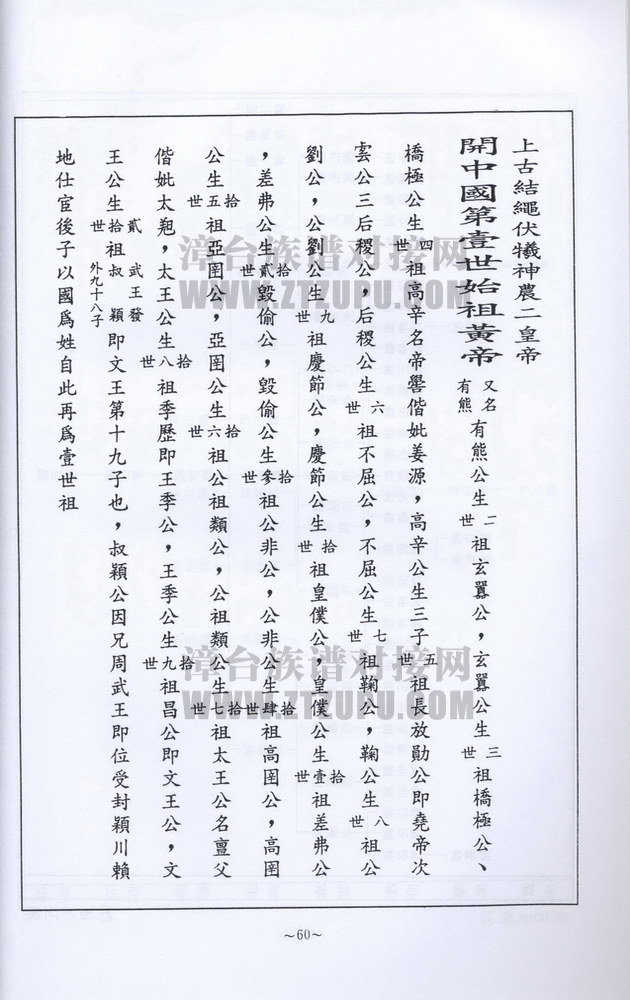 上古結繩伏犧神農二皇帝
開中國第壹世始祖黃帝又名有熊有熊公生二世祖玄囂公，玄囂公生三世祖橋極公、
橋極公生四世祖高辛名帝嚳偕妣姜源，高辛公生三子五世祖長放勛公即堯帝次
雲公三后稷公，后稷公生六世祖不屈公，不屈公生七世祖鞠公，鞠公生八世祖公
劉公，公劉公生九世祖慶節公，慶節公生拾世祖皇僕公，皇僕公生拾壹世祖差弗公
，差弗公生拾貳世毀偷公，毀偷公生拾參世祖公非公，公非公生拾肆世祖高圉公，高圉
公生拾五世亞圉公，亞圉公生拾六世祖公祖類公，公祖類公生拾七世祖太王公名亶父
偕妣太，太王公生拾八世祖季歷即王季公，王季公生拾九世祖昌公即文王公，文
王公生貳拾世祖武王發叔穎外九十八子即文王第十九子也，叔穎公因兄周武王即位受封穎川賴
地仕宦後子以國爲姓自此再爲壹世祖
～60～
漳台族谱对接网
WWW.ZTZUPU.COM
漳台族谱对接网
WWW.ZTZUPU.COM